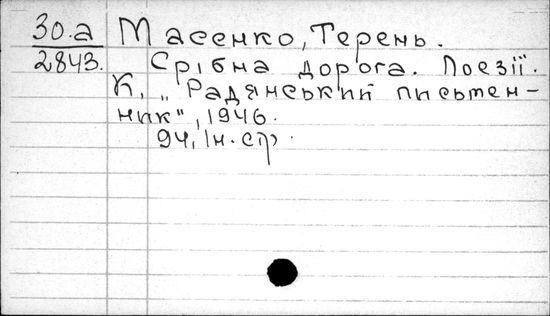 30.а Масенко, Терень.
2843. Срібна дорога. Поезії.
К., „Радянський письмен-
ник", 1946.
94, Ін. стр.